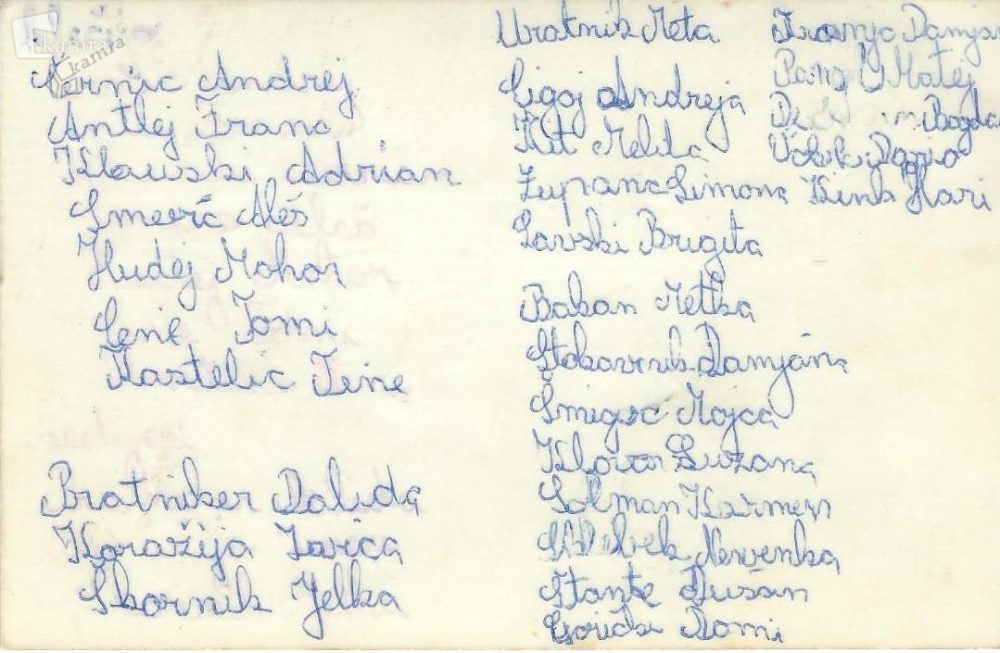 kamra
kamra
Andrej
Antlej Franc
Klavski Adrian
Aleš
Hudej Mohor
Tomi
Kastelic Tine
Bratniker Dalida
Karažija Ivica
Skornik Jelka
Uratnik Meta
Ligoj Andreja
Kit Melita
Zupanc Simona
Savski Brigita
Baban Metka
Stoharnik Damjana
Šmigoc Mojca
Suzana
Solman Karmen
Nevenka
Stante Dušan
Goričk Domi
Franjc Damjan
Matej
Bogdan
Dario
Kink Hari